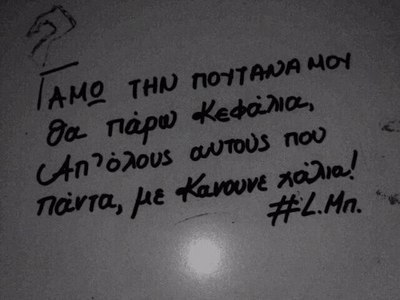 ΓΑΜΩ ΤΗΝ ΠΟΥΤΑΝΑ ΜΟΥ
θα πάρω Κεφάλια,
Απ' όλους αυτους που
πάντα, με κανουνε χάλια!
#L.Μπ.